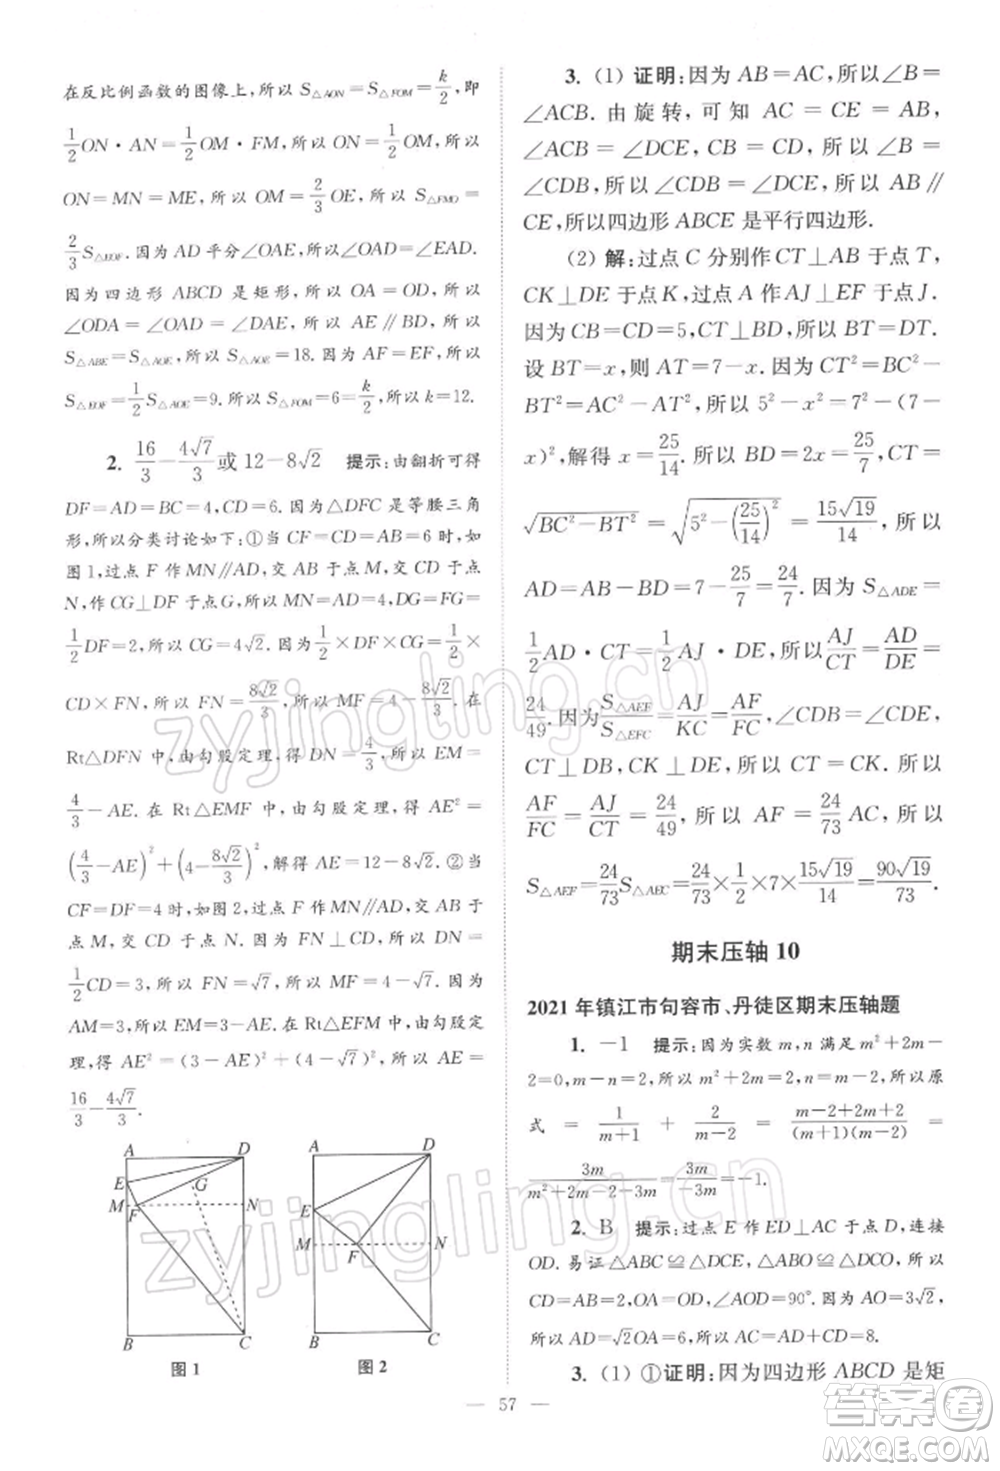 在反比例函数的图像上,所以 S△AON=S△FOM=k/2,即
1/2 ON·AN=1/2 OM·FM,所以 ON·AN=OM·FM. 
ON=MN=ME,所以 OM=2/3 OE,所以 S△FMO=
2/3 S△EOF. 因为 AD 平分∠OAE,所以∠OAD=∠EAD.
因为四边形 ABCD 是矩形,所以 OA=OD,所以
∠ODA=∠OAD=∠DAE,所以 AE∥BD,所以
S△ABE=S△AOE,所以 S△AOE=18. 因为 AF=EF,所以
S△EOF=1/2 S△AOE=9. 所以 S△FOM=6=k/2,所以 k=12.
2. 16/3-4√7/3或 12-8√2 提示:由翻折可得
DF=AD=BC=4,CD=6. 因为△DFC 是等腰三角
形,所以分类讨论如下:①当 CF=CD=AB=6 时,如
图 1,过点 F 作 MN∥AD,交 AB 于点 M,交 CD 于点
N,作 CG⊥DF 于点 G,所以 MN=AD=4,DG=FG=
1/2 DF=2,所以 CG=4√2. 因为1/2×DF×CG=1/2×
CD×FN,所以 FN=8√2/3,所以 MF=4-8√2/3. 在
Rt△DFN 中,由勾股定理,得 DN=4/3,所以 EM=
4/3-AE. 在 Rt△EMF 中,由勾股定理,得 AE²=
(4/3-AE)²+(4-8√2/3)²,解得 AE=12-8√2. ②当
CF=DF=4 时,如图 2,过点 F 作 MN∥AD,交 AB 于
点 M,交 CD 于点 N. 因为 FN⊥CD,所以 DN=
1/2 CD=3,所以 FN=√7,所以 MF=4-√7. 因为
AM=3,所以 EM=3-AE. 在 Rt△EFM 中,由勾股定
理,得 AE²=(3-AE)²+(4-√7)²,所以 AE=
16/3-4√7/3.
A D
E G
M F N
B C
图 1
A D
E
M F N
B C
图 2
3. (1) 证明:因为 AB=AC,所以∠B=
∠ACB. 由旋转,可知 AC=CE=AB,
∠ACB=∠DCE,CB=CD,所以∠B=
∠CDB,所以∠CDB=∠DCE,所以 AB∥
CE,所以四边形 ABCE 是平行四边形.
(2) 解:过点 C 分别作 CT⊥AB 于点 T,
CK⊥DE 于点 K,过点 A 作 AJ⊥EF 于点 J.
因为 CB=CD=5,CT⊥BD,所以 BT=DT.
设 BT=x,则 AT=7-x. 因为 CT²=BC²-
BT²=AC²-AT²,所以 5²-x²=7²-(7-
x)²,解得 x=25/14. 所以 BD=2x=25/7,CT=
√(BC²-BT²)=√(5²-(25/14)²)=15√19/14,所以
AD=AB-BD=7-25/7=24/7. 因为 S△ADE=
1/2 AD·CT=1/2 AJ·DE,所以 AJ/CT=AD/DE=
24/49. 因为S△AEF/S△EFC=AJ/KC=AF/FC,∠CDB=∠CDE,
CT⊥DB,CK⊥DE,所以 CT=CK. 所以
AF/FC=AJ/CT=24/49,所以 AF=24/73 AC,所以
S△AEF=24/73 S△AEC=24/73×1/2×7×15√19/14=90√19/73.
期末压轴 10
2021 年镇江市句容市、丹徒区期末压轴题
1. -1 提示:因为实数 m,n 满足 m²+2m-
2=0,m-n=1,所以 m²+2m=2,n=m-1,所以原
式=1/(m+1)+2/(m-2)=(m-2+2m+2)/((m+1)(m-2))=
3m/(m²+2m-2-3m)=3m/-3m=-1.
2. B 提示:过点 E 作 ED⊥AC 于点 D,连接
OD. 易证△ABC≌△DCE,△ABO≌△DCO,所以
CD=AB=2,OA=OD,∠AOD=90°. 因为 AO=3√2,
所以 AD=√2OA=6,所以 AC=AD+CD=8.
3. (1) ①证明:因为四边形 ABCD 是矩
— 57 —
zyjingling.cn
zyjingling.cn
答案圈
MXQE.COM